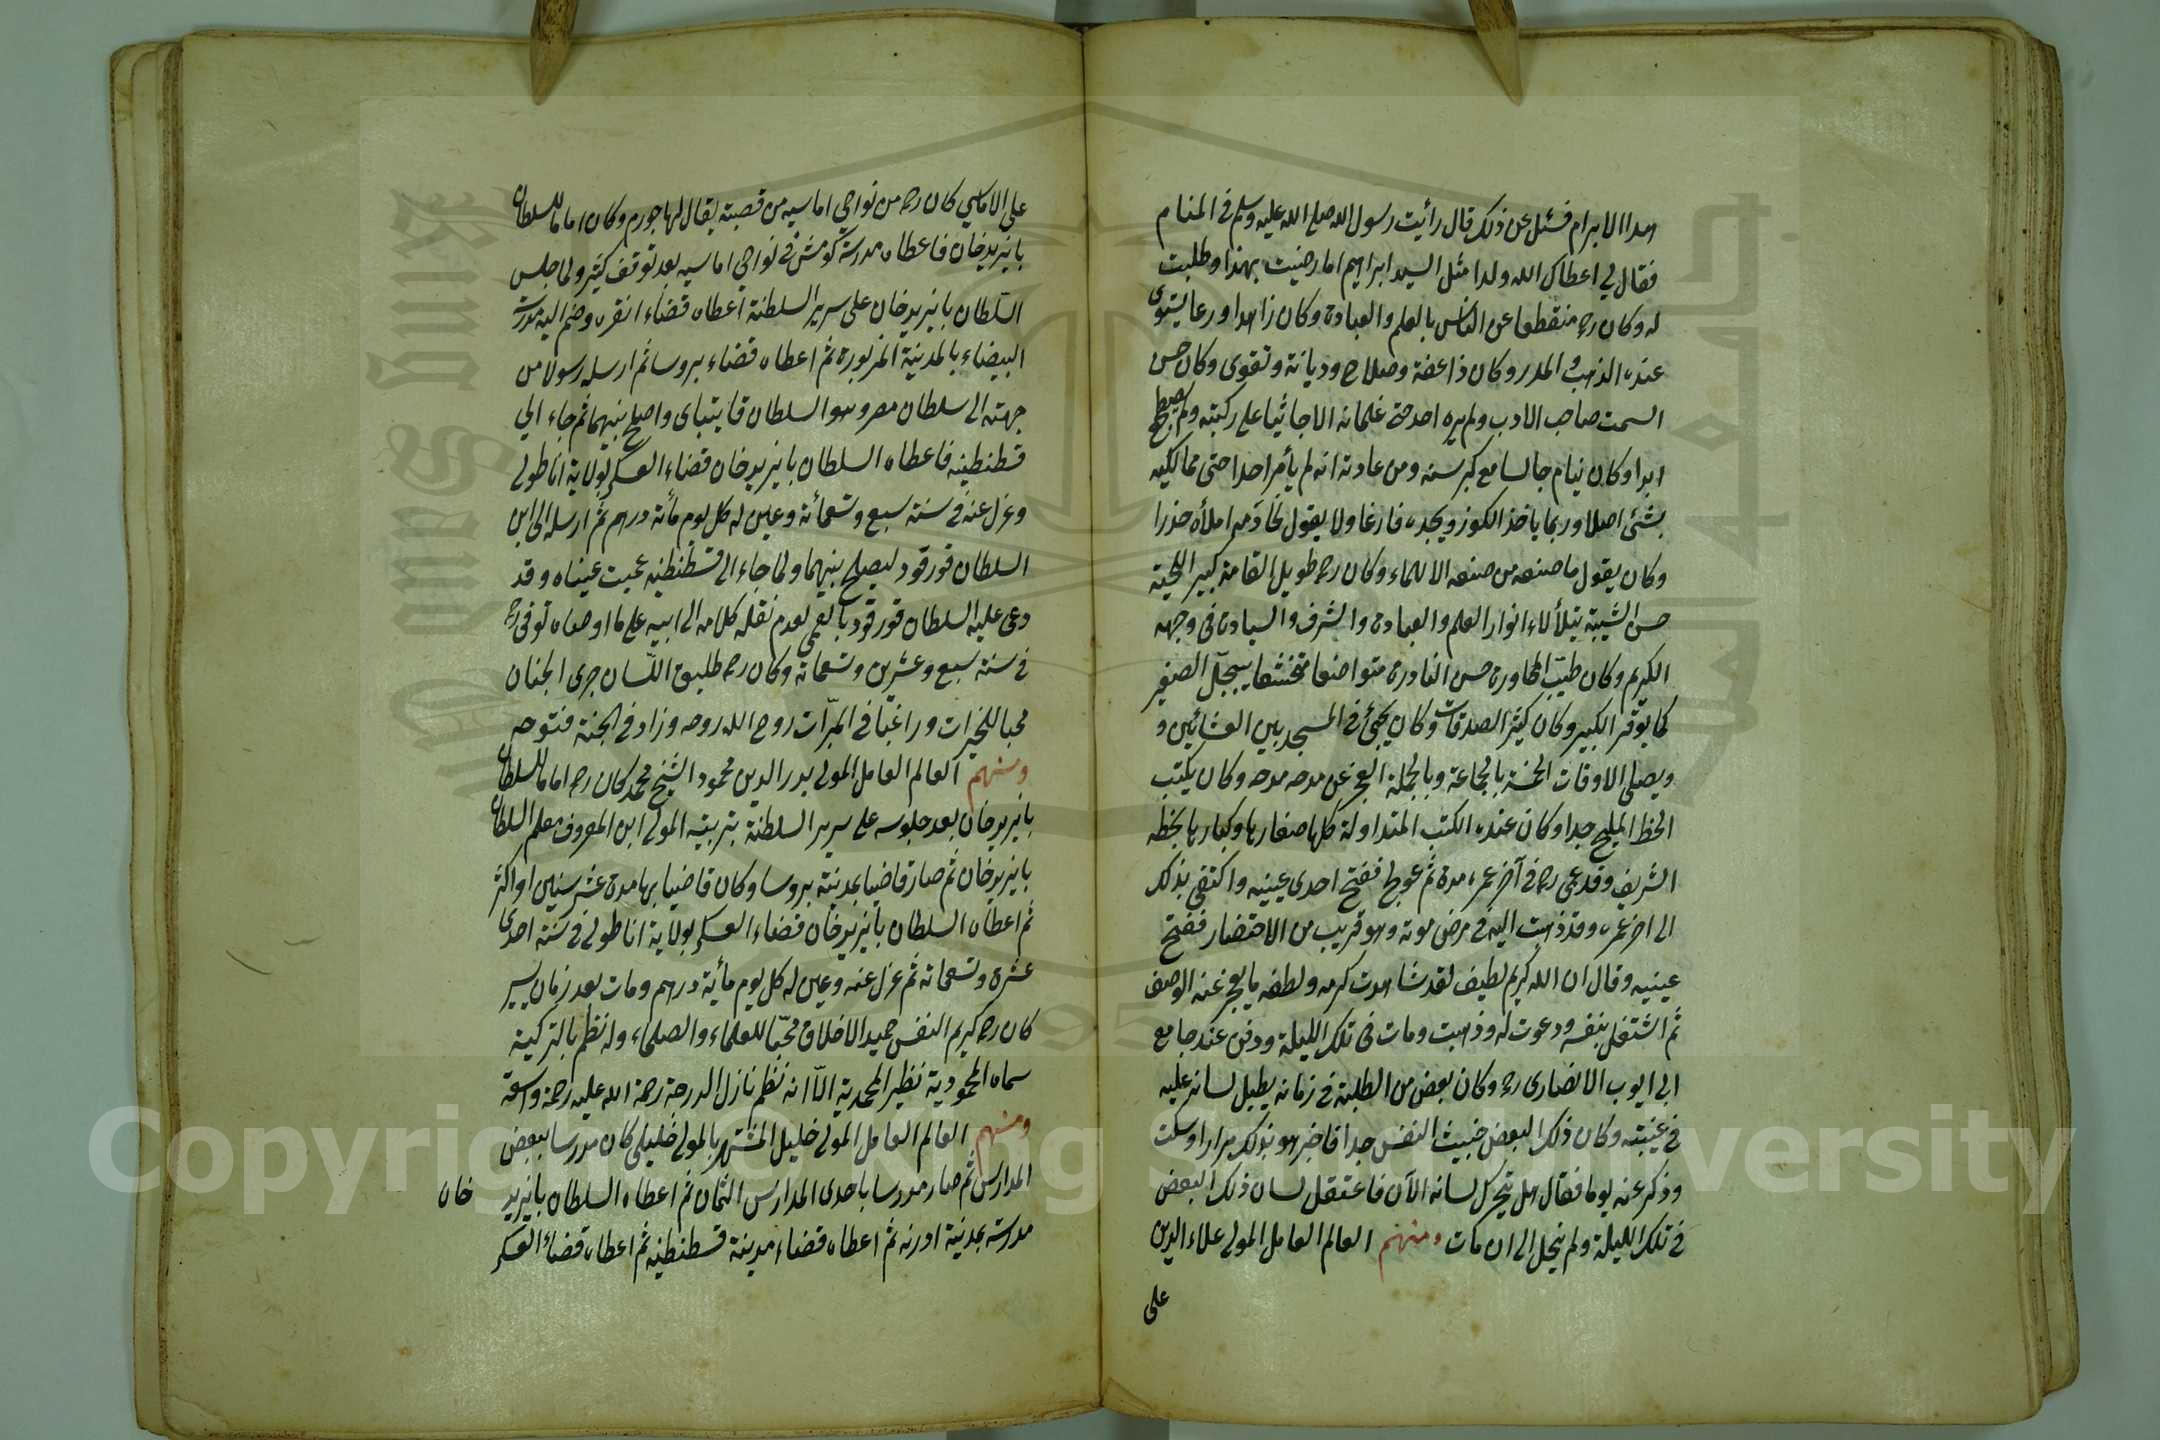 هذا الابرام فسئل عن ذلك قال رأيت رسول الله صلى الله عليه وسلم في المنام
فقال لي اعطاك الله ولدا مثل السيد ابراهيم اما رضيت بهذا وطلبت
له وكان ره منقطعا عن الناس بالعلم والعبادة وكان زاهدا ورعا يستوى
عنده الذهب والمدر وكان ذا عفة وصلاح وديانة وتقوى وكان حسن
السمت صاحب الادب ولم يره احد حتى غلمانه الا جاثيا على ركبته ولم يضطجع
ابدا وكان ينام جالسا مع كبر سنه ومن عادته انه لم يأمر احدا حتى مماليكه
بشئ اصلا وربما ياخذ الكوز ويجده فارغا ولا يقول لخادمه املأه حذرا
وكان يقول ما صنعه من صنعه الا للماء وكان ره طويل القامة كبير اللحية
حسن الشيبة يتلألاء انوار العلم والعبادة والشرف والسيادة في وجهه
الكريم وكان طيب المحاورة حسن النادرة متواضعا متخشعا يبجل الصغير
كما يوقر الكبير وكان كثير الصدقات وكان يجئ في المسجد بين العشائين و
ويصلى الاوقات الخمسة بالجماعة وبالجملة العجز عن مدحه مدحه وكان يكتب
الخط المليح جدا وكان عنده الكتب المتداولة كلها صغارها وكبارها بخطه
الشريف وقد عمى ره في آخر عمره مدة ثم عولج ففتح احدى عينيه واكتفى بذلك
الى اخر عمره وقد ذهبت اليه في مرض موته وهو قريب من الاحتضار ففتح
عينيه وقال ان الله كريم لطيف لقد شاهدت كرمه ولطفه ما يعجز عنه الوصف
ثم اشتغل بنفسه ودعوت له وذهبت ومات في تلك الليلة ودفن عند جامع
ابي ايوب الانصاري ره وكان بعض من الطلبة في زمانه يطيل لسانه عليه
في غيبته وكان ذلك البعض خبيث النفس جدا فاخبر هو بذلك مرارا وسكت
وذكر عنه يوما فقال هل يتحرك لسانه الآن فاعتقل لسان ذلك البعض
في تلك الليلة ولم ينحل الى ان مات ومنهم العالم العامل المولى علاء الدين
على
على الاماسي كان ره من نواحي اماسيه من قصبة يقال لها جورم وكان اماما للسلطان
بايزيد خان فاعطاه مدرسة كومش في نواحي اماسيه بعد توقف كثير ولما جلس
السلطان بايزيد خان على سرير السلطنة اعطاه قضاء انقره وضم اليه مدرسة
البيضاء بالمدينة المزبورة ثم اعطاه قضاء بروسا ثم ارسله رسولا من
جهته الى سلطان مصر وهو السلطان قايتباى واصلح بينهما ثم جاء الي
قسطنطينه فاعطاه السلطان بايزيد خان قضاء العسكر بولاية اناطولي
وعزل عنه في سنة سبع وتسعمائة وعين له كل يوم مأته درهم ثم ارسله الى ابن
السلطان قورقود ليصلح بينهما ولما جاء الى قسطنطنيه عميت عيناه وقد
دعى عليه السلطان قورقود بالعمى لعدم نقله كلامه الى ابيه على ما اوصاه توفى ره
في سنة سبع وعشرين وتسعمائة وكان ره طليق اللسان جرى الجنان
محبا للخيرات وراغبا في المبرات روح الله روحه وزاد في الجنة فتوحه
ومنهم العالم العامل المولى بدر الدين محمود الشيخ محمد كان ره اماما للسلطان
بايزيد خان بعد جلوسه على سرير السلطنة بتربية المولى ابن المعروف معلم السلطان
بايزيد خان ثم صار قاضيا بمدينة بروسا وكان قاضيا بها مدة عشر سنين او اكثر
ثم اعطاه السلطان بايزيد خان قضاء العسكر بولاية اناطولي في سنة احدى
عشرة وتسعمائة ثم عزل عنه وعين له كل يوم مأية درهم ومات بعد زمان يسير
كان ره كريم النفس حميد الاخلاق محبا للعلماء والصلحاء وله نظم بالتركية
سماه المحمودية نظير المحمدية الا انه نظم نازل الدرجة رحمة الله عليه رحمة واسعة
ومنهم العالم العامل المولى خليل المشتهر بالمولى خليلى كان مدرسا ببعض
المدارس ثم صار مدرسا باحدى المدارس الثمان ثم اعطاه السلطان بايزيد خان
مدرسة بمدينة اورنه ثم اعطاه قضاء مدينة قسطنطنيه ثم اعطاه قضاء العسكر
Copyright © King Saud University